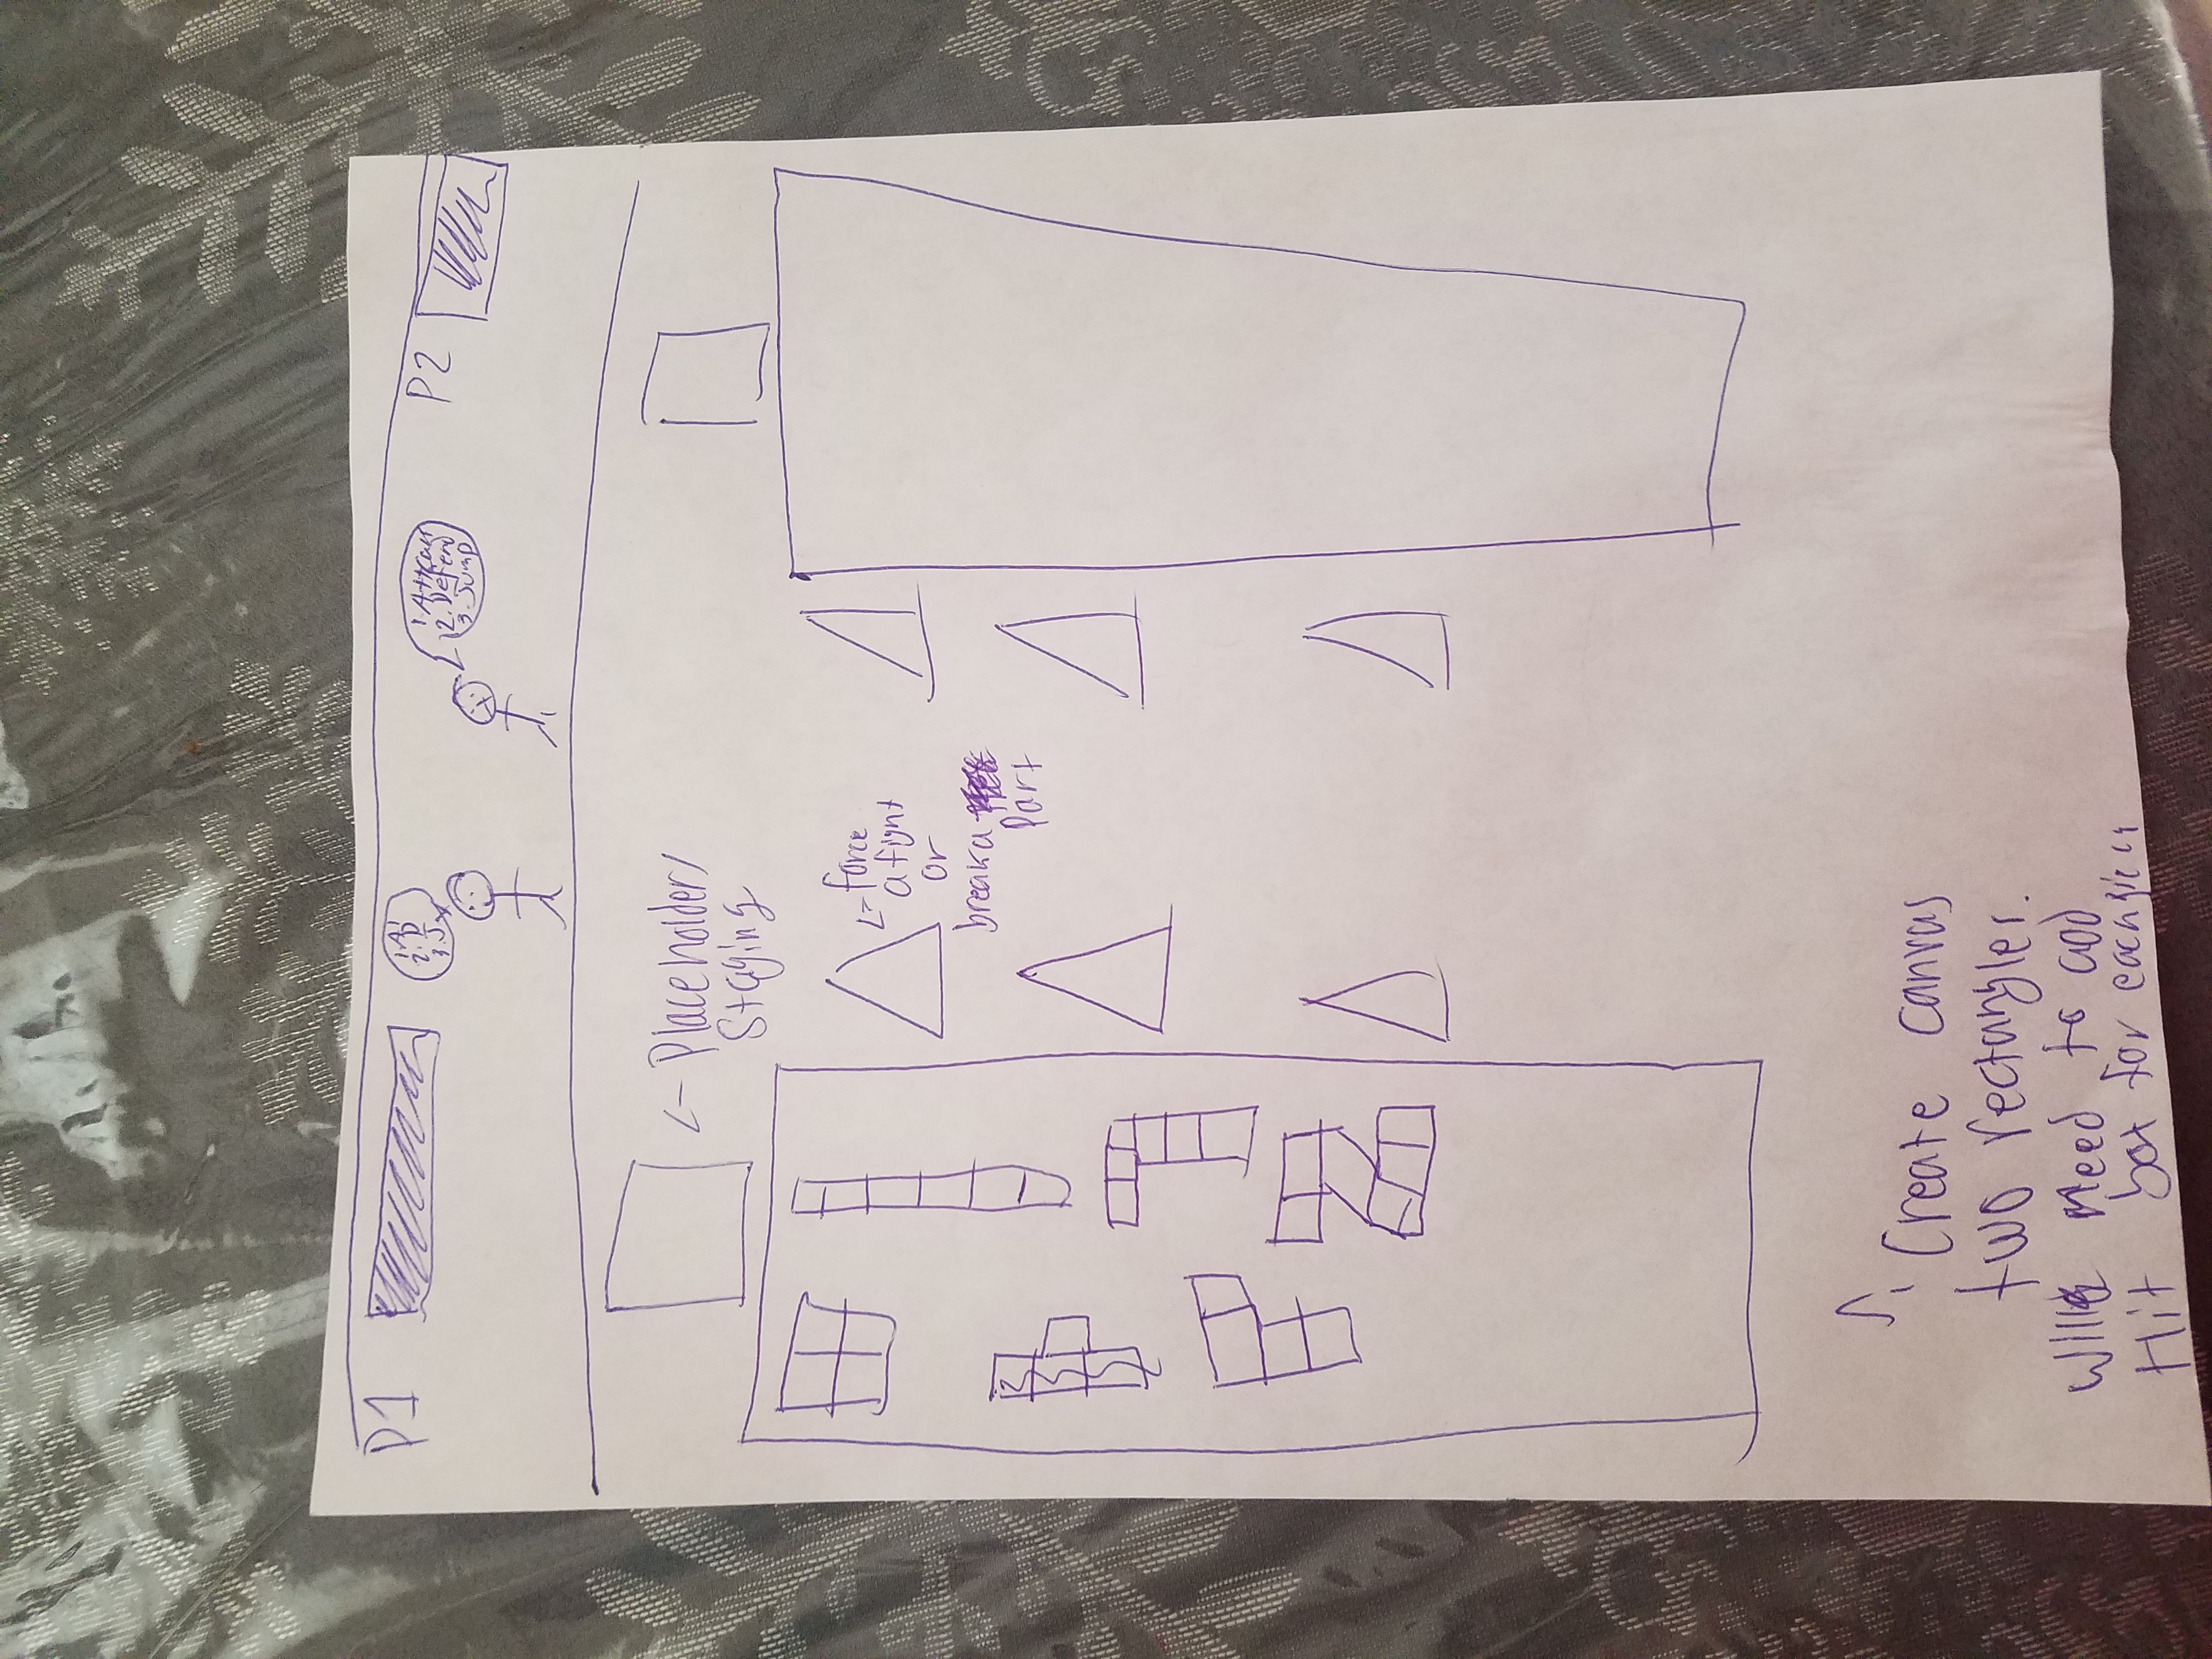 P1
1. A
2. D
3. J
1. Attcak
2. Defend
3. Jump
P2
<- Placeholder/
Staging
<- force
a fight
or
break a
Part
Create canvas
two rectangles.
Will need to add
Hit box for each piece